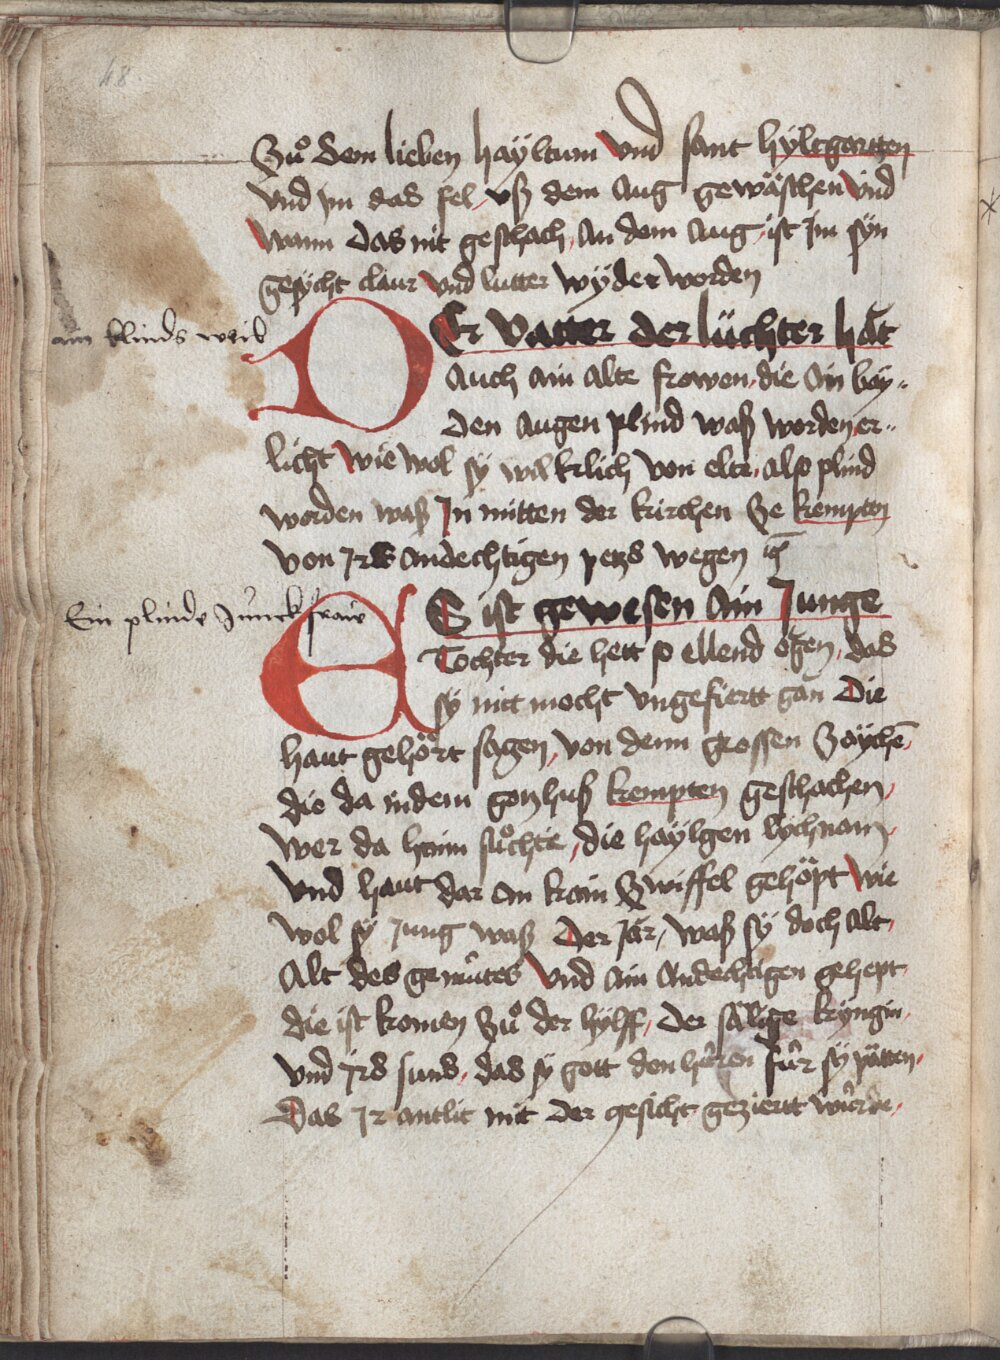 48
Zuͦ dem lieben hayltum vnd sant hyltgartten
vnd im das fel, vß dem Aug gewäschen vnd
wann das nit geschach, An dem Aug, ist Im syn
gesycht claur vnd lutter wyder worden
ain blinds weib
DEr vatter der lüchter hät
Auch ain Alte frowen, die An bay-
den Augen plind waß worden, er-
licht wie wol sy willklich von elte, Also plind
worden waß In mitten der kirchen Ze kempten
von Irs Andechtigen petz wegen
Ein plinde Junckfraw
ES ist gewesen Ain Junge
Tochter die hett so ellend ogen, das
sy nitt mocht vngefiertt gan Die
haut gehört sagen, von denn grossen Zaychē,
die da indem gotzhuß kempten geschachen,
wer da haim suͦchte, die haylgen lychnam,
vnd haut dar An kain Zwiffel gehöpt wie
wol sy Jung waß Der Jar, waß sy doch Alt,
Alt des gemuͤtes vnd Ain Andechtigen gehept
die ist komen Zuͦ der hylff, der sälige kyngin,
vnd Irs suns, das sy gott den heren fuͤr sy pätten,
Das Ir antlit mit der gesicht geziertt wuͤrde,